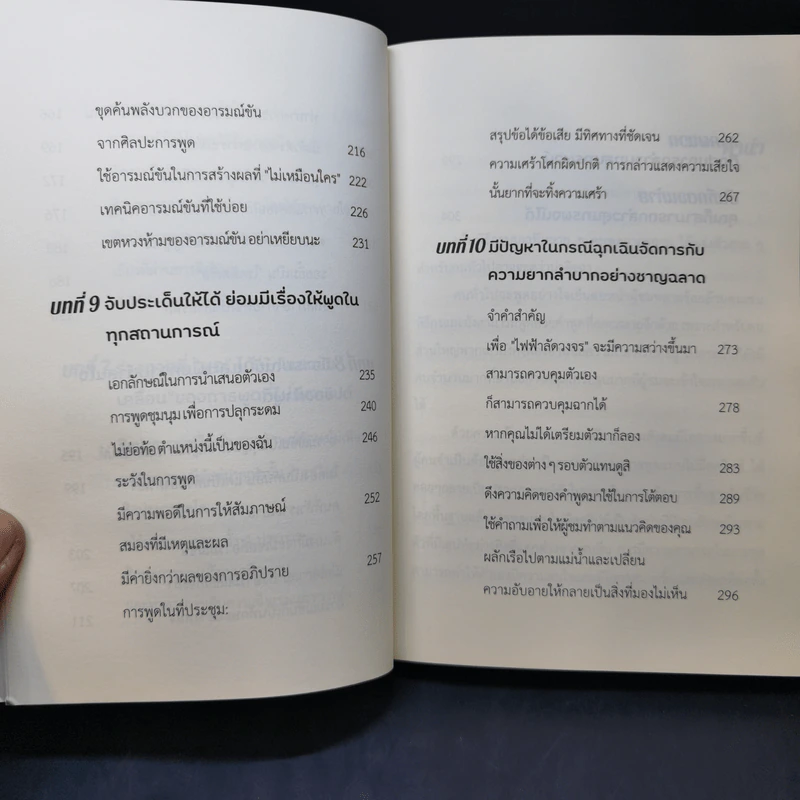 ขุดค้นพลังบวกของอารมณ์ขัน
จากศิลปะการพูด 216
ใช้อารมณ์ขันในการสร้างผลที่ "ไม่เหมือนใคร" 222
เทคนิคอารมณ์ขันที่ใช้บ่อย 226
เขตหวงห้ามของอารมณ์ขัน อย่าเหยียบนะ 231
บทที่ 9 จับประเด็นให้ได้ ย่อมมีเรื่องให้พูดใน
ทุกสถานการณ์
เอกลักษณ์ในการนำเสนอตัวเอง 235
การพูดชุมนุม เพื่อการปลุกระดม 240
ไม่ย่อท้อ ตำแหน่งนี้เป็นของฉัน 246
ระวังในการพูด
มีความพอดีในการให้สัมภาษณ์ 252
สมองที่มีเหตุและผล
มีค่ายิ่งกว่าผลของการอภิปราย 257
การพูดในที่ประชุม:
สรุปข้อได้ข้อเสีย มีทิศทางที่ชัดเจน 262
ความเศร้าโศกผิดปกติ การกล่าวแสดงความเสียใจ
นั้นยากที่จะทิ้งความเศร้า 267
บทที่ 10 มีปัญหาในกรณีฉุกเฉินจัดการกับ
ความยากลำบากอย่างชาญฉลาด
จำคำสำคัญ
เพื่อ "ไฟฟ้าลัดวงจร" จะมีความสว่างขึ้นมา 273
สามารถควบคุมตัวเอง
ก็สามารถควบคุมฉากได้ 278
หากคุณไม่ได้เตรียมตัวมาก็ลอง
ใช้สิ่งของต่าง ๆ รอบตัวแทนดูสิ 283
ดึงความคิดของคำพูดมาใช้ในการโต้ตอบ 289
ใช้คำถามเพื่อให้ผู้ชมทำตามแนวคิดของคุณ 293
ผลักเรือไปตามแม่น้ำและเปลี่ยน
ความอับอายให้กลายเป็นสิ่งที่มองไม่เห็น 296